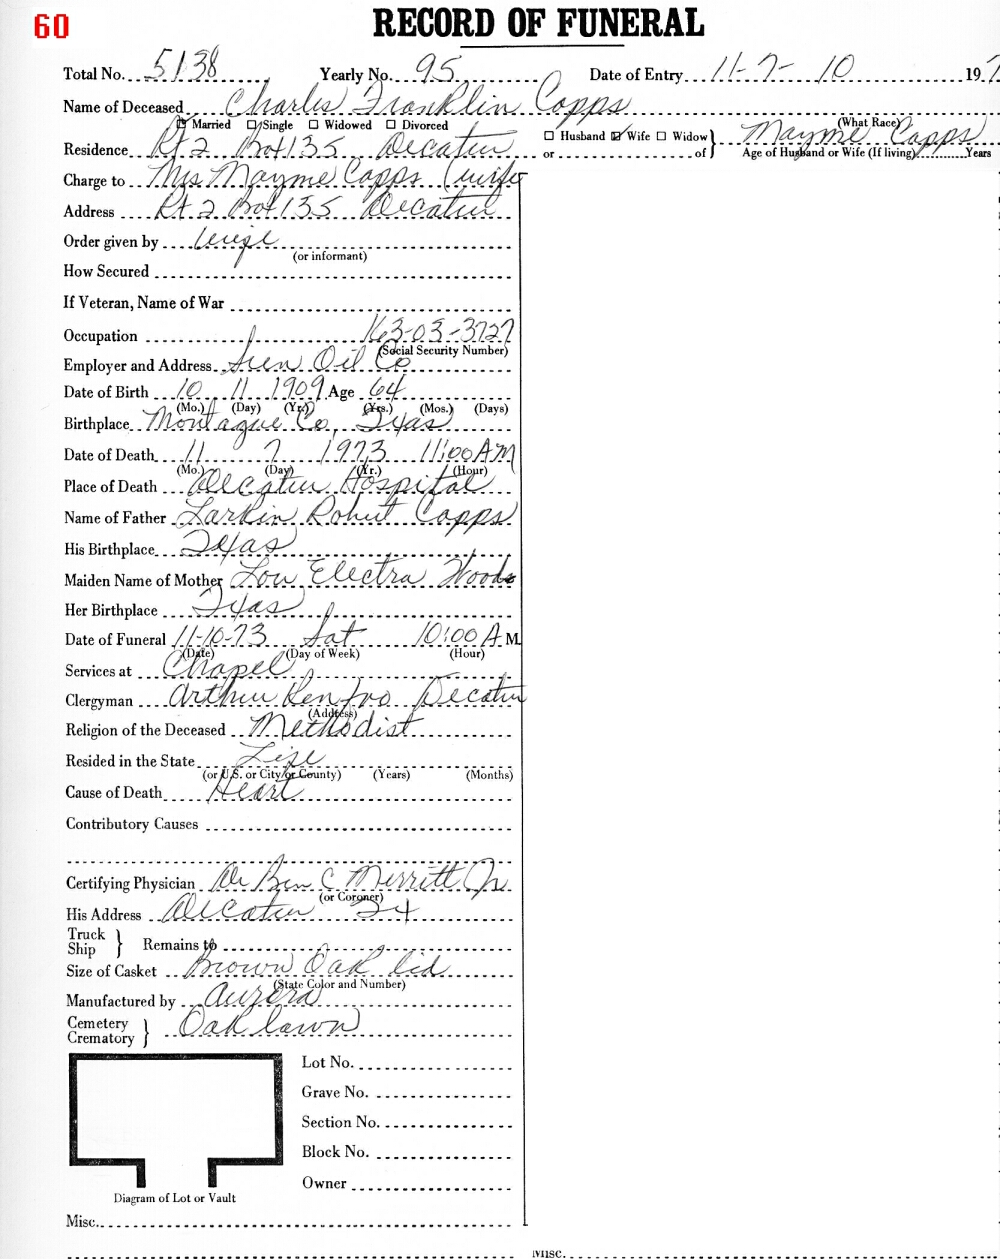 60
RECORD OF FUNERAL
Total No. 5138 Yearly No. 95 Date of Entry 11-7-10 197
Name of Deceased Charles Franklin Capps
(What Race)
Married Single Widowed Divorced
Husband Wife Widow } Mayme Capps
Residence Rt 2 Box 135 Decatur
or of Age of Husband or Wife (If living) Years
Charge to Mrs Mayme Capps (wife
Address Rt 2 Box 135 Decatur
Order given by wife
(or informant)
How Secured
If Veteran, Name of War
Occupation 163-03-3727
(Social Security Number)
Employer and Address Sun Oil Co
Date of Birth 10 11 1909 Age 64
(Mo.) (Day) (Yr.) (Yrs.) (Mos.) (Days)
Birthplace Montague Co, Texas
Date of Death 11 7 1973 11:00 AM
(Mo.) (Day) (Yr.) (Hour)
Place of Death Decatur Hospital
Name of Father Larkin Robert Capps
His Birthplace Texas
Maiden Name of Mother Lou Electra Woods
Her Birthplace Texas
Date of Funeral 11-10-73 Sat 10:00 A M.
(Date) (Day of Week) (Hour)
Services at Chapel
Clergyman Arthur Renfro Decatur
(Address)
Religion of the Deceased Methodist
Resided in the State Life
(or U.S. or City or County) (Years) (Months)
Cause of Death Heart
Contributory Causes
Certifying Physician Dr Ben C Merritt Jr
(or Coroner)
His Address Decatur Tx
Truck
Ship } Remains to
Size of Casket Brown Oak lid
(State Color and Number)
Manufactured by Aurora
Cemetery
Crematory } Oak lawn
Lot No.
Grave No.
Section No.
Block No.
Owner
Diagram of Lot or Vault
Misc.
Misc.